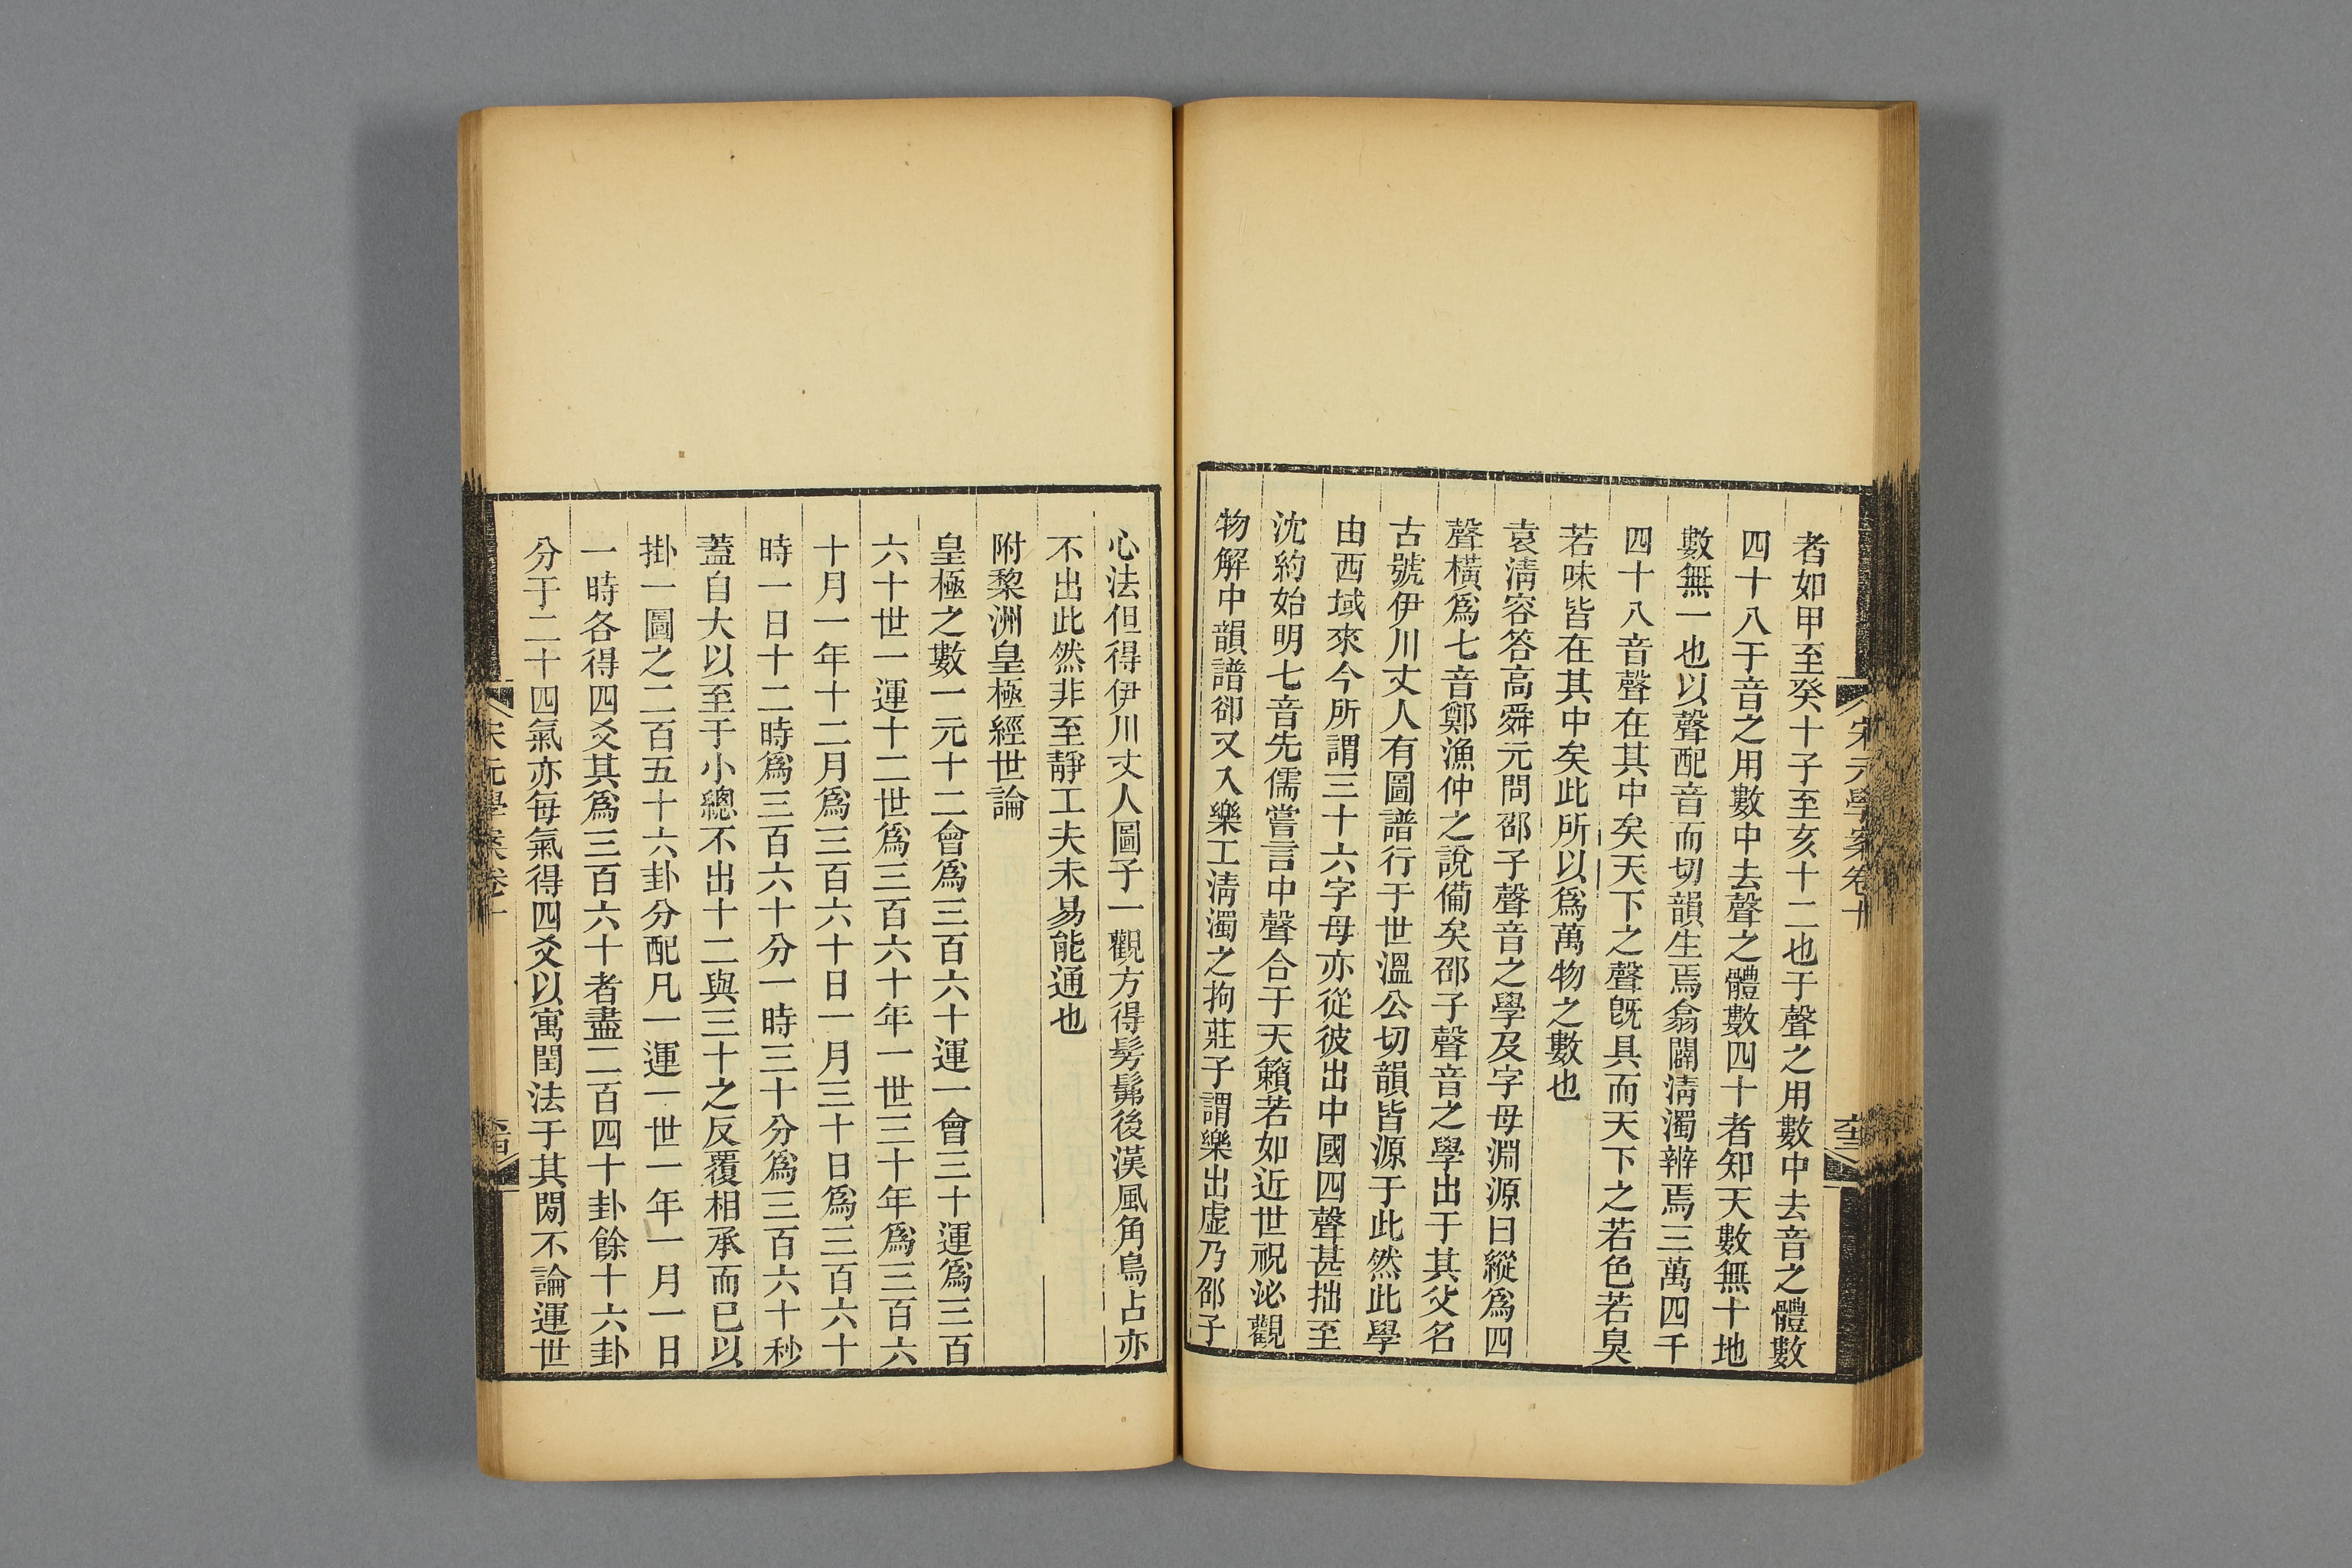 宋元學案卷十
者如甲至癸十子至亥十二也于聲之用數中去音之體數
四十八于音之用數中去聲之體數四十者知天數無十地
數無一也以聲配音而切韻生焉翕闢清濁辨焉三萬四千
四十八音聲在其中矣天下之聲旣具而天下之若色若臭
若味皆在其中矣此所以爲萬物之數也
袁清容答高舜元問邵子聲音之學及字母淵源曰縱爲四
聲橫爲七音鄭漁仲之說備矣邵子聲音之學出于其父名
古號伊川丈人有圖譜行于世溫公切韻皆源于此然此學
由西域來今所謂三十六字母亦從彼出中國四聲甚拙至
沈約始明七音先儒嘗言中聲合于天籟若如近世祝泌觀
物解中韻譜卻又入樂工清濁之拘莊子謂樂出虛乃邵子
心法但得伊川丈人圖子一觀方得髣髴後漢風角鳥占亦
不出此然非至靜工夫未易能通也
附黎洲皇極經世論
皇極之數一元十二會爲三百六十運一會三十運爲三百
六十世一運十二世爲三百六十年一世三十年爲三百六
十月一年十二月爲三百六十日一月三十日爲三百六十
時一日十二時爲三百六十分一時三十分爲三百六十秒
蓋自大以至于小總不出十二與三十之反覆相承而已以
掛一圖之二百五十六卦分配凡一運一世一年一月一日
一時各得四爻其爲三百六十者盡二百四十卦餘十六卦
分于二十四氣亦每氣得四爻以寓閏法于其閒不論運世
宋元學案卷十